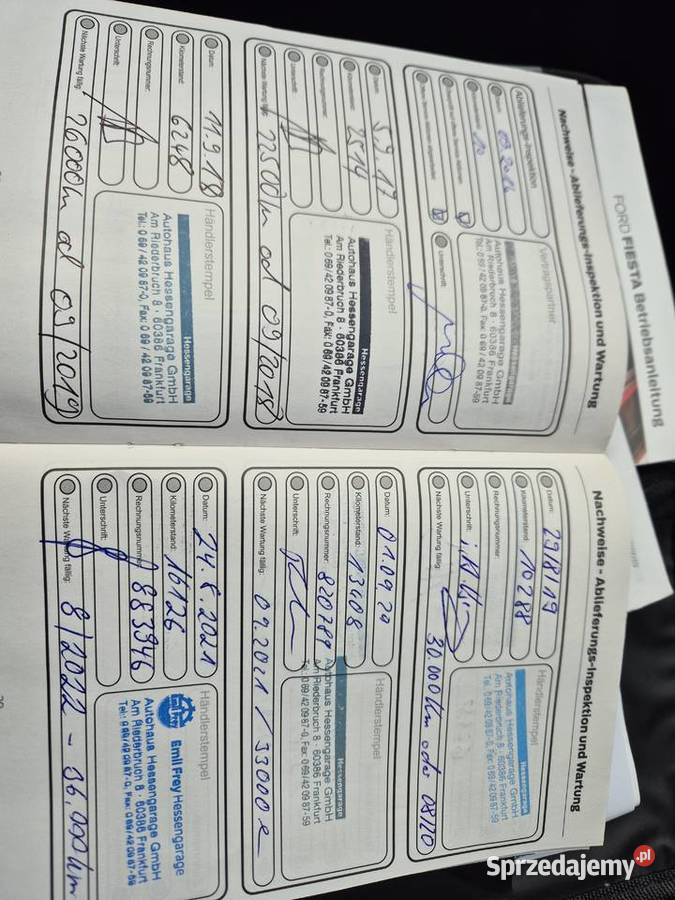 FORD FIESTA Betriebsanleitung
Nachweise - Ablieferungs-Inspektion und Wartung
Ablieferungs-Inspektion
Vertragspartner
Datum:
09.2016
Autohaus Hessengarage GmbH
Am Riederbruch 8 · 60386 Frankfurt
Tel.: 0 69 / 42 09 87-0, Fax: 0 69 / 42 09 87-59
Unterschrift:
Datum: 5.9.17
Kilometerstand: 2514
Rechnungsnummer:
Unterschrift:
Nächste Wartung fällig: 22500km od 09/2018
Händlerstempel
Hessengarage
Autohaus Hessengarage GmbH
Am Riederbruch 8 · 60386 Frankfurt
Tel.: 0 69 / 42 09 87-0, Fax: 0 69 / 42 09 87-59
Datum: 11.9.18
Kilometerstand: 6248
Rechnungsnummer:
Unterschrift:
Nächste Wartung fällig: 26000km od 09/2019
Händlerstempel
Hessengarage
Autohaus Hessengarage GmbH
Am Riederbruch 8 · 60386 Frankfurt
Tel.: 0 69 / 42 09 87-0, Fax: 0 69 / 42 09 87-59
Nachweise - Ablieferungs-Inspektion und Wartung
Datum: 23/8/19
Kilometerstand: 10288
Rechnungsnummer:
Unterschrift:
Nächste Wartung fällig: 30.000km oder 08/20
Händlerstempel
Hessengarage
Autohaus Hessengarage GmbH
Am Riederbruch 8 · 60386 Frankfurt
Tel.: 0 69 / 42 09 87-0, Fax: 0 69 / 42 09 87-59
Datum: 01.09.20
Kilometerstand: 13408
Rechnungsnummer: 820789
Unterschrift:
Nächste Wartung fällig: 09.2021 / 33000
Händlerstempel
Hessengarage
Autohaus Hessengarage GmbH
Am Riederbruch 8 · 60386 Frankfurt
Tel.: 0 69 / 42 09 87-0, Fax: 0 69 / 42 09 87-59
Datum: 24.8.2021
Kilometerstand: 16126
Rechnungsnummer: 883946
Unterschrift:
Nächste Wartung fällig: 8/2022 - 36.000km
Händlerstempel
Emil Frey Hessengarage
Autohaus Hessengarage GmbH
Am Riederbruch 8 · 60386 Frankfurt
Tel.: 0 69 / 42 09 87-0, Fax: 0 69 / 42 09 87-59
Sprzedajemy.pl